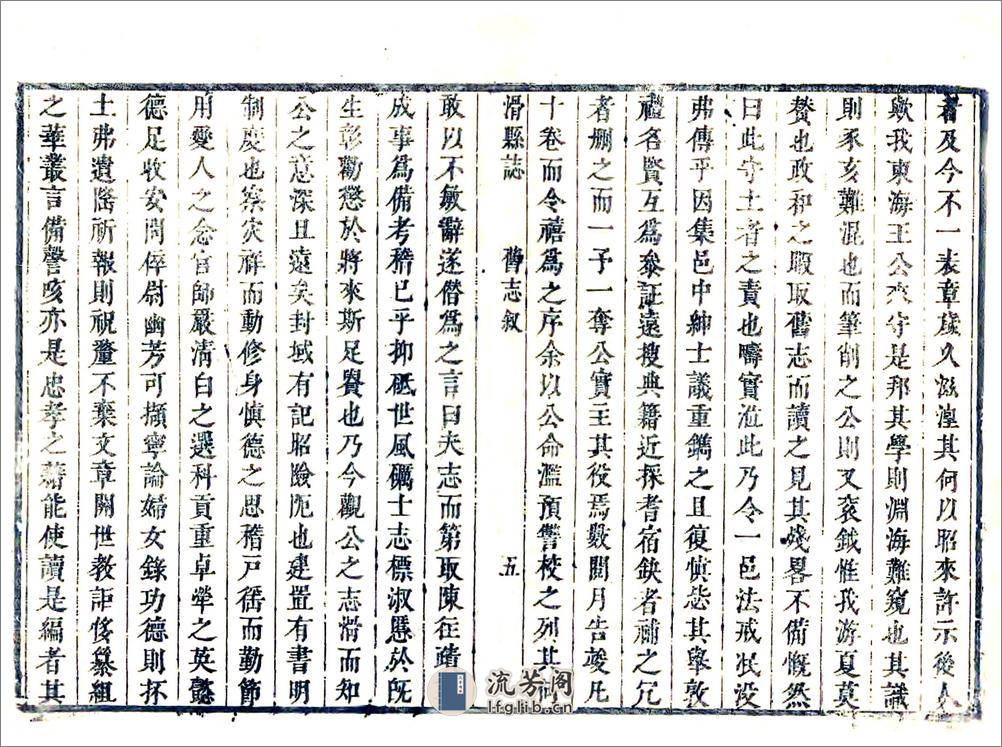 者及今不一表章歲久滋湮其何以昭來許示後人
歟我東海王公來守是邦其學則淵海難窺也其識
則豕亥難混也而筆削之公則又袞鉞惟我游夏莫
贊也政和之暇取舊志而讀之見其殘畧不備慨然
曰此守土者之責也疇實涖此乃令一邑法戒泯没
弗傳乎因集邑中紳士議重鐫之且復慎毖其舉敦
禮名賢互爲叅証遠搜典籍近採耆宿缺者補之冗
者删之而一予一奪公實主其役焉數閱月告竣凡
十卷而令禧爲之序余以公命濫預讐校之列其
滑縣誌 舊志叙 五
敢以不敏辭遂僣爲之言曰夫志而第取陳徃蹟
成事爲備考稽已乎抑砥世風礪士志標淑慝於旣
生彰勸懲於將來斯足貴也乃今觀公之志滑而知
公之意深且遠矣封域有記昭險阨也建置有書明
制度也察灾祥而動修身慎德之思稽戸徭而勤節
用愛人之念官師嚴淸白之選科貢重卓犖之英懿
德足收安問倅尉幽芳可擷寧論婦女錄功德則抔
土弗遺隆祈報則祝釐不棄文章關世教詎侈纂組
之華叢言備謦咳亦是忠孝之藉能使讀是編者其
流芳阁
lfglib.cn